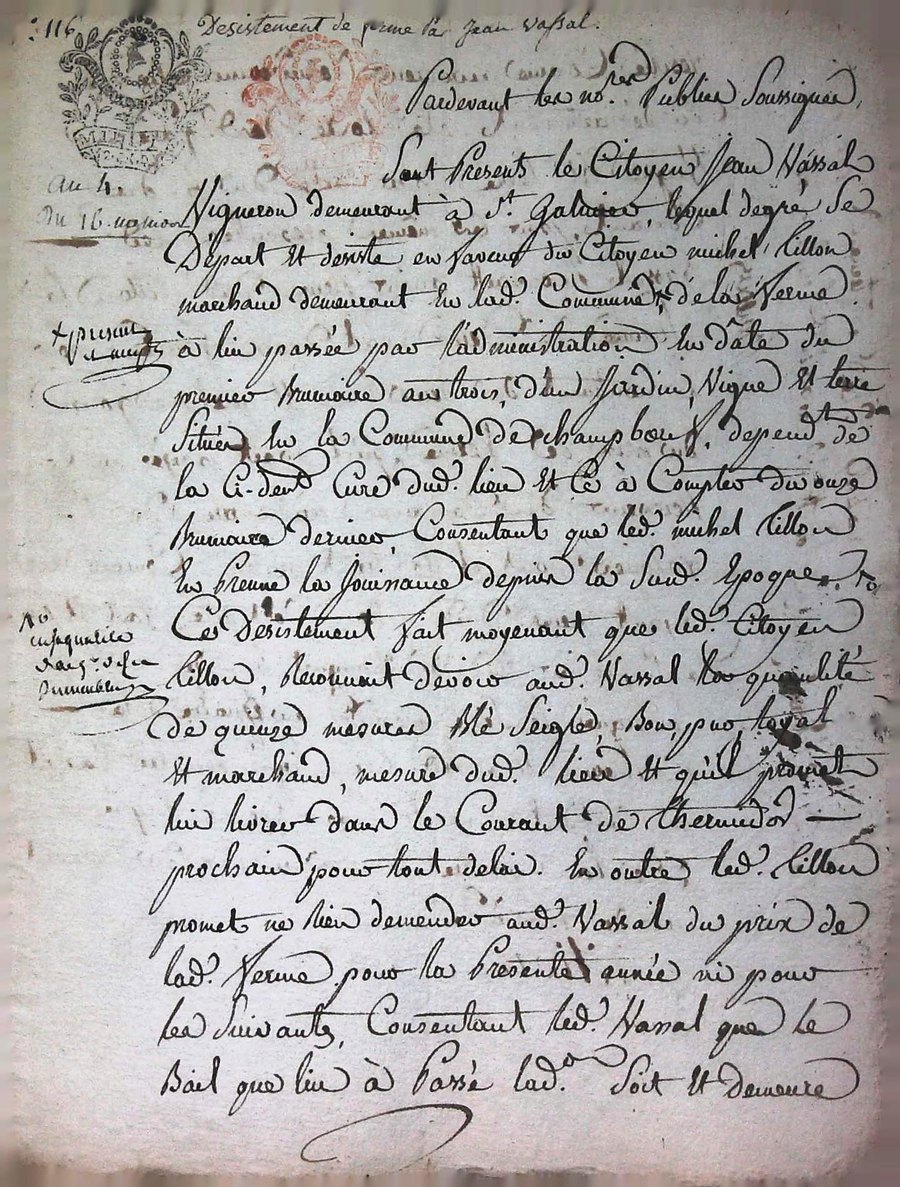 116
Desistement de ferme par Jean Vassal.
Pardevant les no.res Publics Soussignés,
Sont Presents le Citoyen Jean Vassal
an 4.
du 16
Vigneron demeurant à St. Galmier, lequel degré se
Départ et desiste en faveur du Citoyen michel tillon
marchand demeurant en lad.e Commune, + de la ferme
+ present
et accept
à lui passée par l'administration en date du
premier Brumaire an trois, d'un Jardin, Vigne et terre
Situés en la Commune de champbœuf, depend.t de
la Ci-dev.t Cure dud.t lieu et Ce à Compter du onze
Brumaire dernier, Consentant que led.t michel tillon
En Prenne la Jouissance depuis la Susd.e Epoque, 10
10
en sa qualité
Ce Desistement fait moyenant que led.t Citoyen
tillon, Reconnoit devoir aud.t Vassal la quantité
de quinze mesures Blé Seigle, Bon, pur, loyal
et marchand, mesure dud.t lieu et qu'il promet
lui livrer dans le Courant de thermidor —
prochain pour tout delai. En outre led.t tillon
promet ne rien demender aud.t Vassal du prix de
lad.e ferme pour la Presente année ni pour
les Suivantes, Consentant led.t Vassal que le
Bail que lui à Passé lad.on Soit et demeure